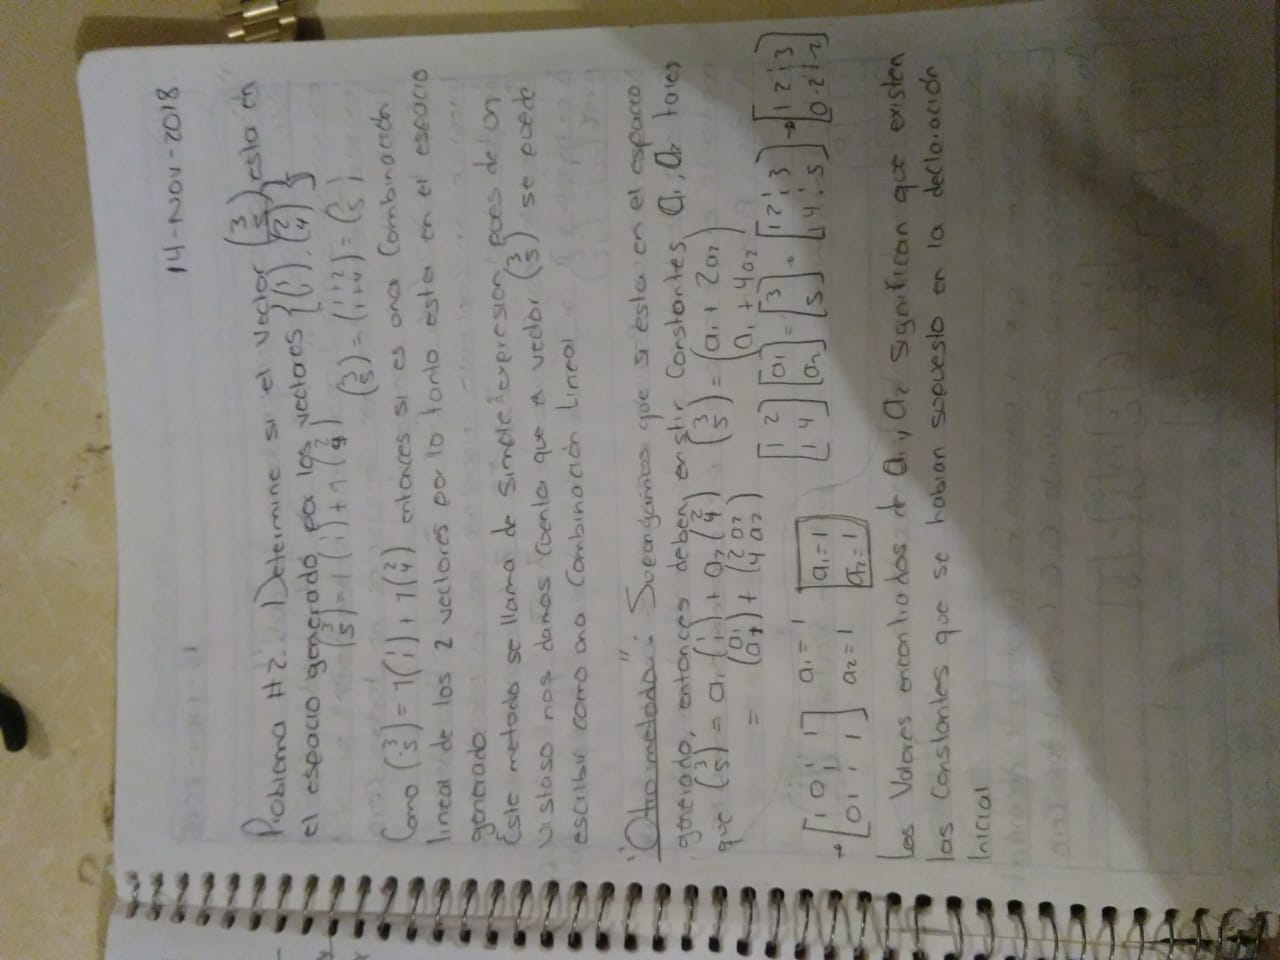 14-Nov-2018
Problema #2. Determine si el vector (3 5) esta en
el espacio generado por los vectores {(1 1), (2 4)}
(3 5) = 1(1 1) + 1(2 4)
(3 5) = (1+2 1+4) = (3 5)
Como (3 5) = 1(1 1) + 1(2 4) entonces si es una combinación
lineal de los 2 vectores por lo tanto esta en el espacio
generado.
Este metodo se llama de simple expresion pues de un
vistaso nos damos cuenta que el vector (3 5) se puede
escribir como una combinación lineal
"Otro metodo": Supongamos que si esta en el espacio
generado, entonces deben existir constantes a1, a2 tales
que (3 5) = a1 (1 1) + a2 (2 4) (3 5) = (a1 + 2a2 a1 + 4a2)
= (a1 a1) + (2 a2 4 a2)
[1 2 1 4] [a1 a2] = [3 5] = [1 2 ¦ 3 1 4 ¦ 5] → [1 2 ¦ 3 0 2 ¦ 2]
→ [1 0 ¦ 1 0 1 ¦ 1] a1 = 1 a2 = 1 a1 = 1 a2 = 1
Los Valores encontrados de a1 y a2 significan que existen
las constantes que se habian supuesto en la declaración
Inicial